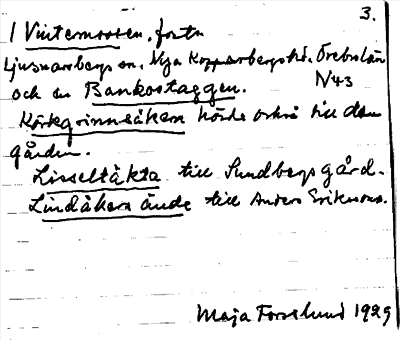 3.
1 Vintermossen, forts
Ljusnarsbergs sn. Nya Kopparbergs hd. Örebro län
N43
och en Bankostaggen.
Körkgrinnsåkern hörde också till den
gården.
Lisseltäkta till Sundbergsgård.
Lindåkers ände till Anders Eriksons.
Maja Forslund 1929